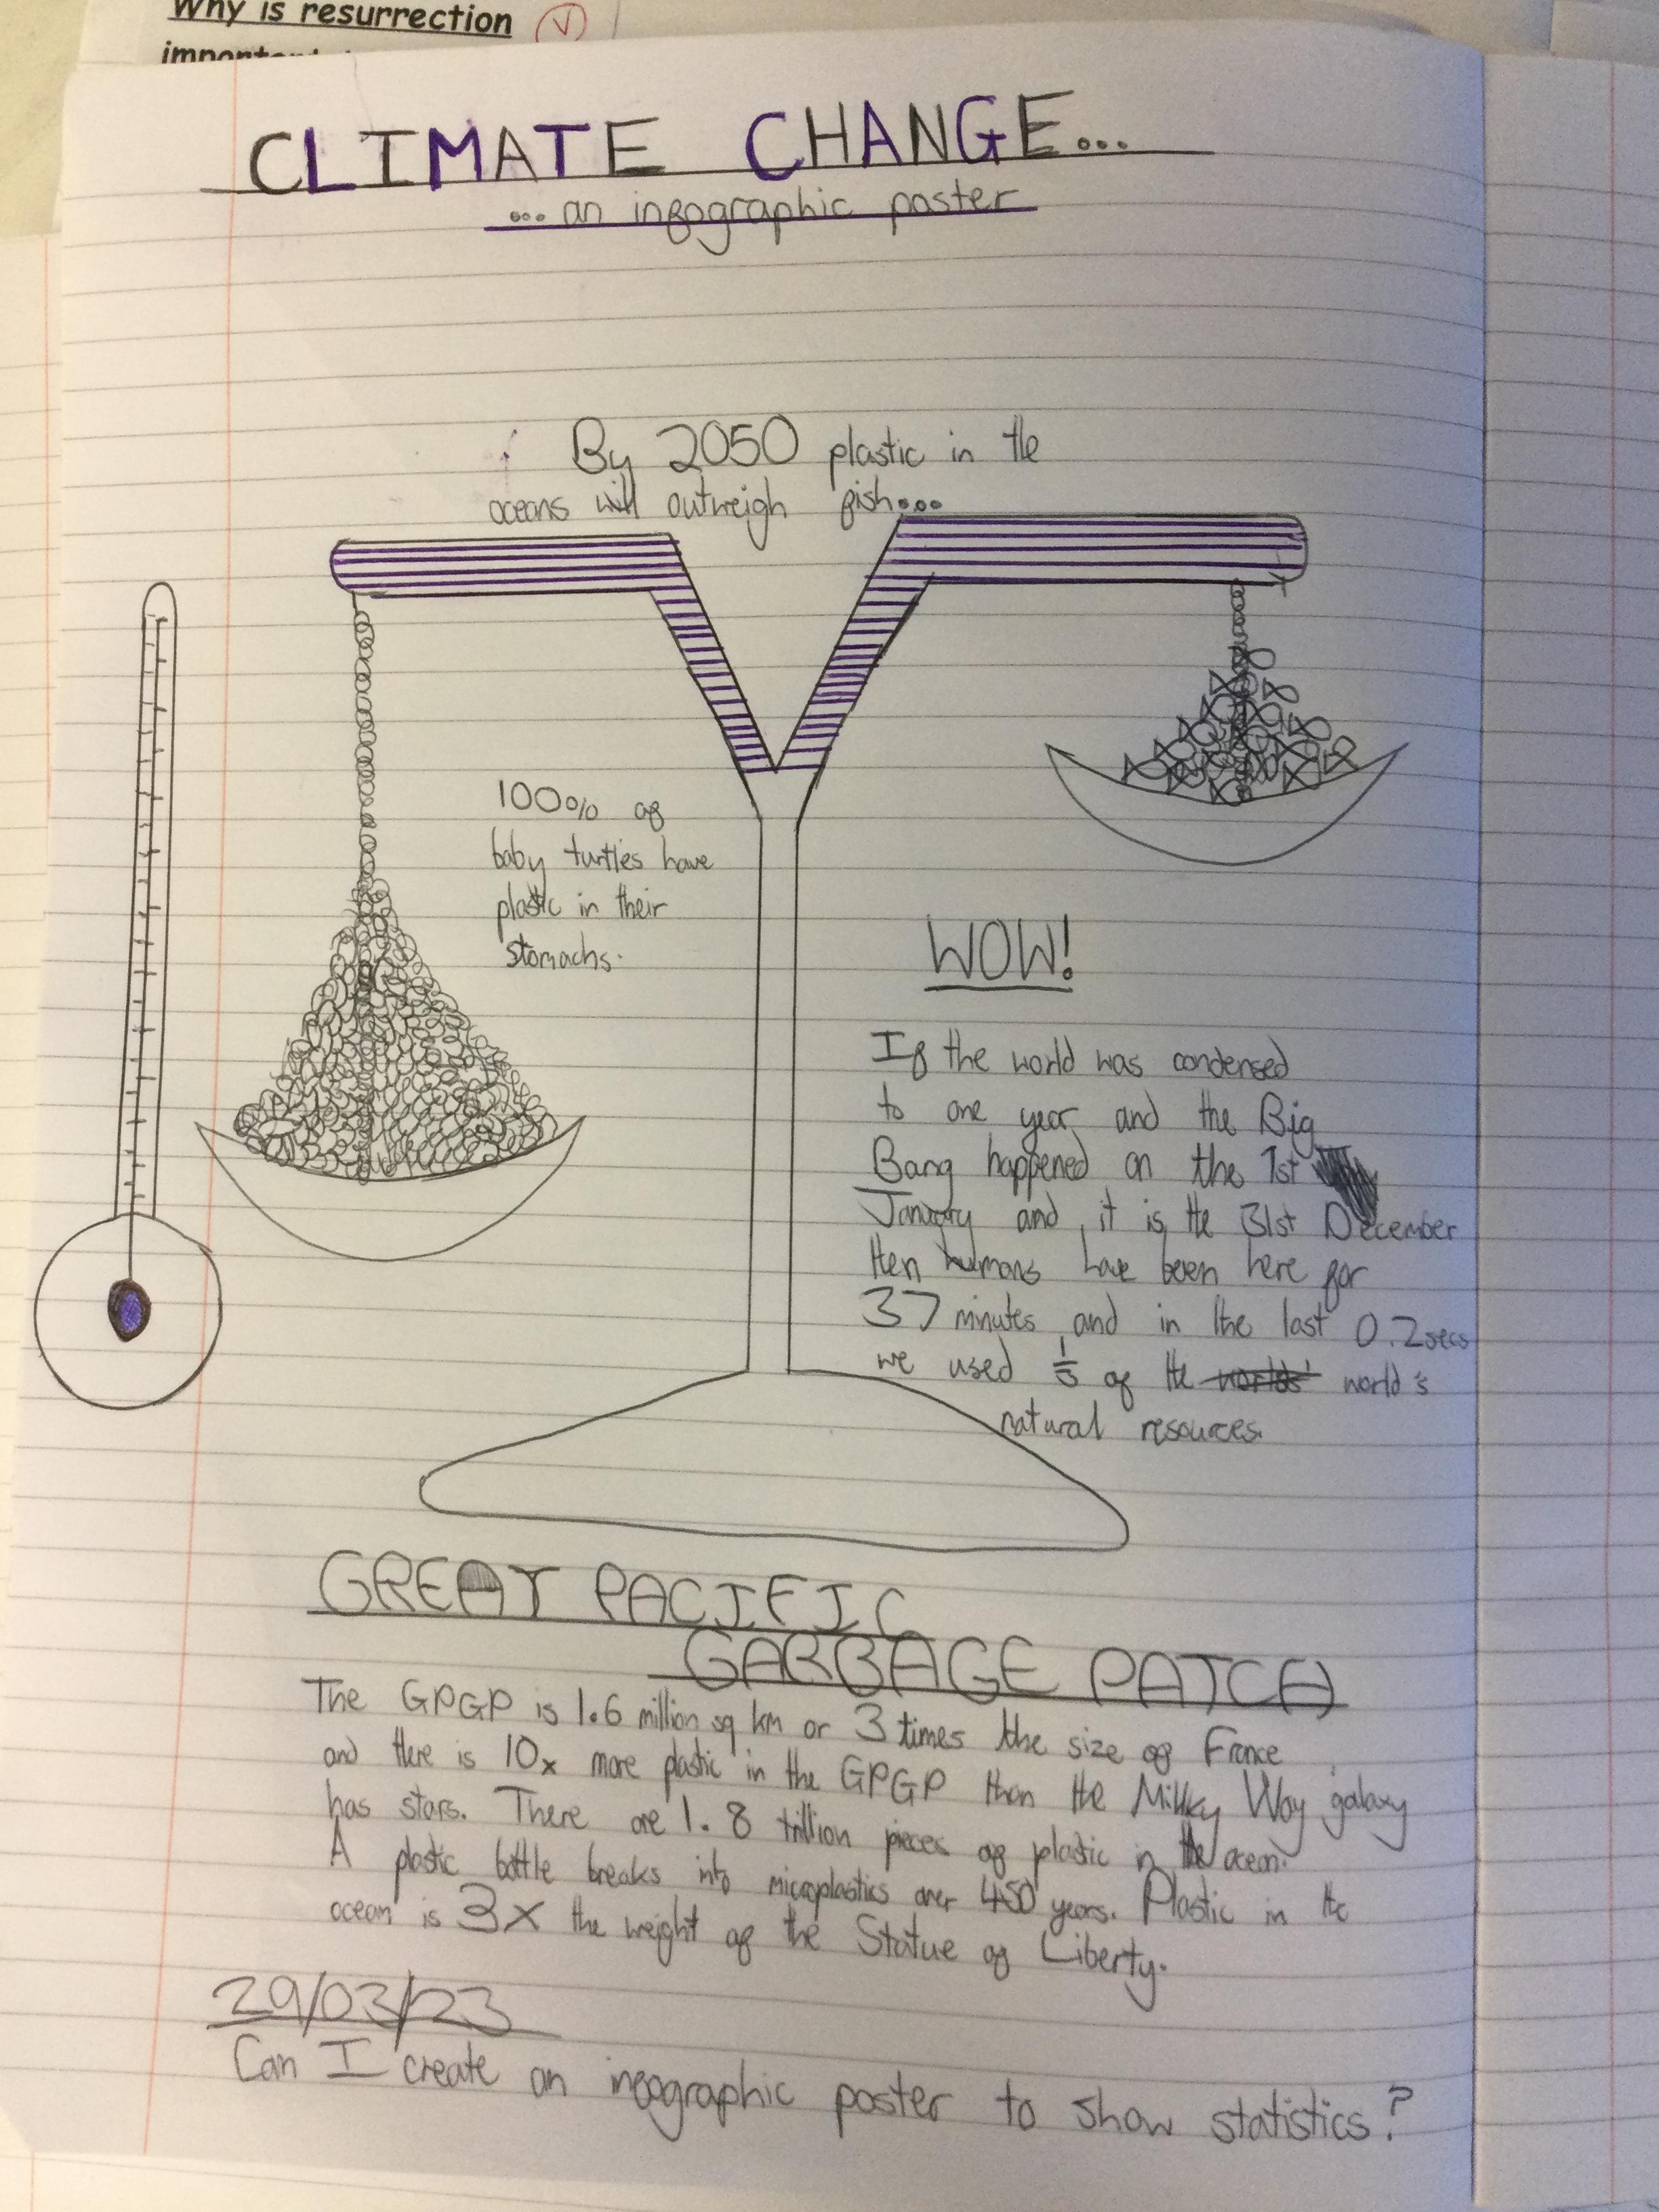 Why is resurrection
CLIMATE CHANGE...
... an infographic poster
By 2050 plastic in the
oceans will outweigh fish...
100% of
baby turtles have
plastic in their
stomachs.
WOW!
If the world was condensed
to one year and the Big
Bang happened on the 1st
January and it is the 31st December
then humans have been here for
37 minutes and in the last 0.2secs
we used 1/3 of the worlds' world's
natural resources.
GREAT PACIFIC
GARBAGE PATCH
The GPGP is 1.6 million sq km or 3 times the size of France
and there is 10x more plastic in the GPGP than the Milky Way galaxy
has stars. There are 1.8 trillion pieces of plastic in the ocean.
A plastic bottle breaks into microplastics over 450 years. Plastic in the
ocean is 3x the weight of the Statue of Liberty.
29/03/23
Can I create an infographic poster to show statistics?